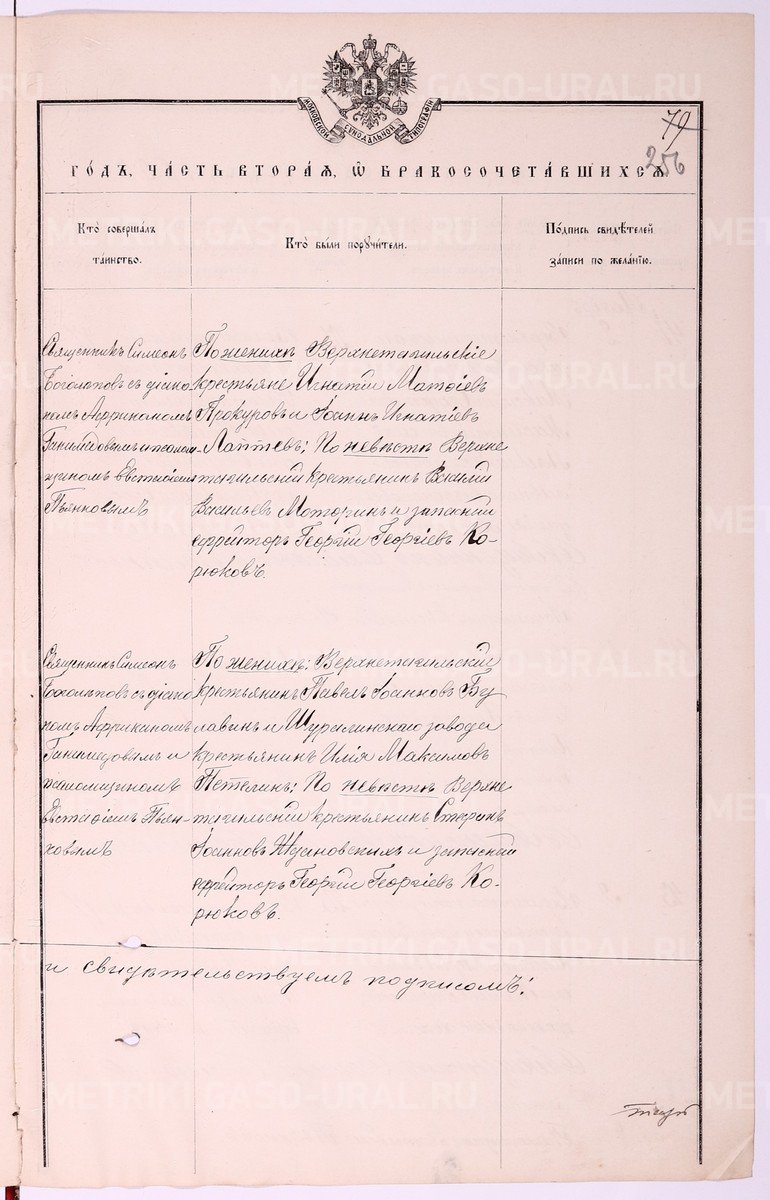 МОСКОВСКОЙ СУНОДАЛЬНОЙ ТИПОГРАФІИ
79
256
ГОДЪ, ЧАСТЬ ВТОРАЯ, Ѿ БРАКОСОЧЕТАВШИХСЯ
Кто совершалъ таинство.
Кто были поручители.
Подпись свидѣтелей записи по желанію.
Священникъ Симеонъ
Боголѣповъ съ діако
номъ Африканомъ
Ганимедовымъ и псалом-
щикомъ Евстафіемъ
Пьянковымъ
По женихѣ Верхнетагильскіе
крестьяне Игнатій Матѳіевъ
Прокуровъ и Іоаннъ Игнатіев
Лаптевъ; По невѣстѣ Верхне
тагильский крестьянинъ Василий
Васильевъ Маторинъ и запасный
ефрейторъ Георгій Георгіевъ Ко-
рюковъ.
Священникъ Симеонъ
Боголѣповъ съ діако
номъ Африканомъ
Ганимедовымъ и
псаломщикомъ
Евстафіемъ Пьян-
ковымъ
По женихѣ: Верхнетагильский
крестьянинъ Павелъ Іоанновъ Бу
лавинъ и Шуралинскаго завода
крестьянинъ Илія Максимовъ
Петелинъ; По невѣстѣ Верхне
тагильский крестьянинъ Стефанъ
Іоанновъ Ждановскихъ и запасный
ефрейторъ Георгій Георгіевъ Ко-
рюковъ.
и свидѣтельствуемъ подписомъ:
METRIKI.GASO-URAL.RU